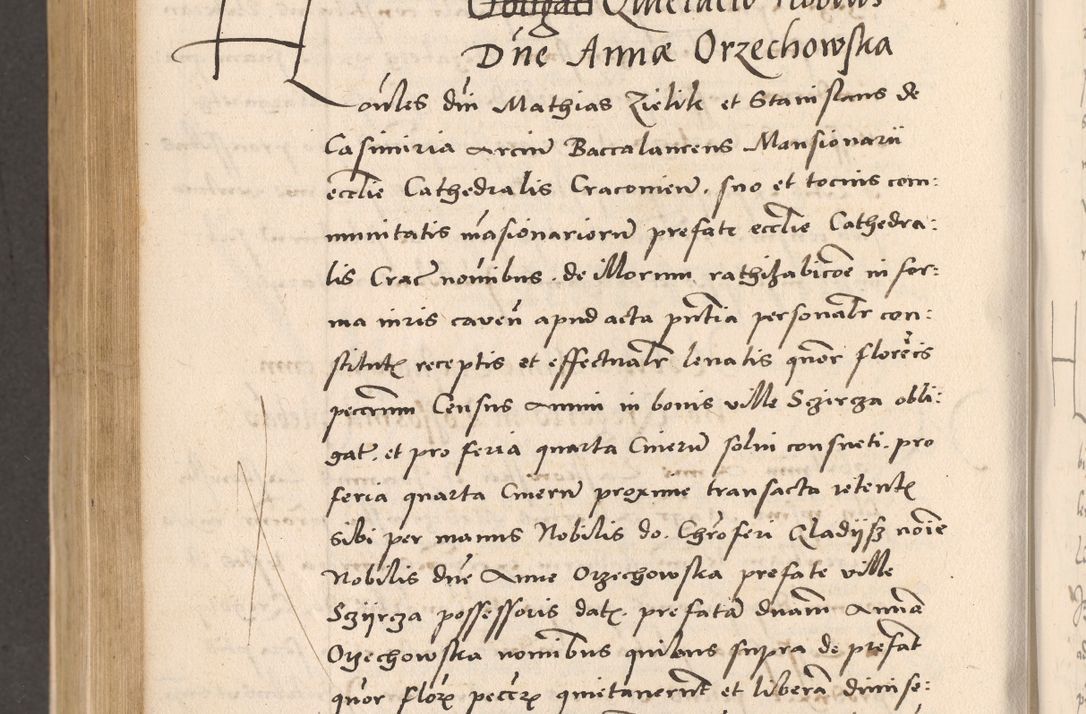 Obligaci Quietacio Nobilis
Dne Annæ Orzechowska
Honorabiles dni Mathias Zielik et Stanislaus de
Casimiria Arciu Baccalaureus Mansionarii
ecclie Cathedralis Cracovien. suo et tocius com:
munitatis masionarioru prefate ecclie Cathedra:
lis Crac nominibus. de illorum rathihabicoe in for:
ma iuris caven apud acta pntia personalr con:
stituti receptis et effectualr levatis quor florecis
peccrum Census Annui in bonis ville Sczircza obli:
gat. et pro feria quarta Cineru solui consueti. pro
feria quarta Cineru proxime transacta retenti
sibi per manus Nobilis do. Chroferi Gladijsz noie
Nobilis dne Anne Orzechowska prefate ville
Sczijrcza possessoris dat. prefata dnam Anna
Orzechowska nominibus quibus supra de prefat
quor flor peccr quietaverut et libera dimise: